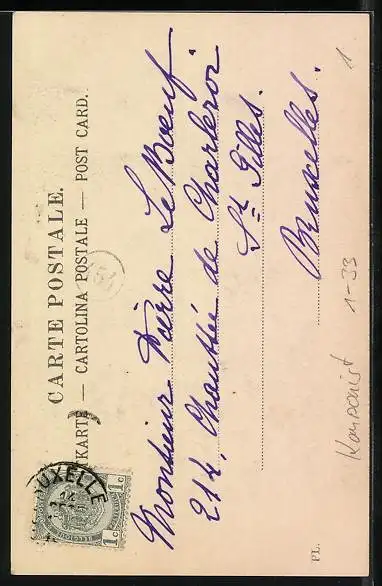 CARTE POSTALE.
TKARTE — CARTOLINA POSTALE — POST CARD.
UXELLE
14
1c 1c
Monsieur Pierre Le Boeuf
214, Chaussée de Charleroi
St Gilles.
Bruxelles.
Komponist 1-33
1
PL.